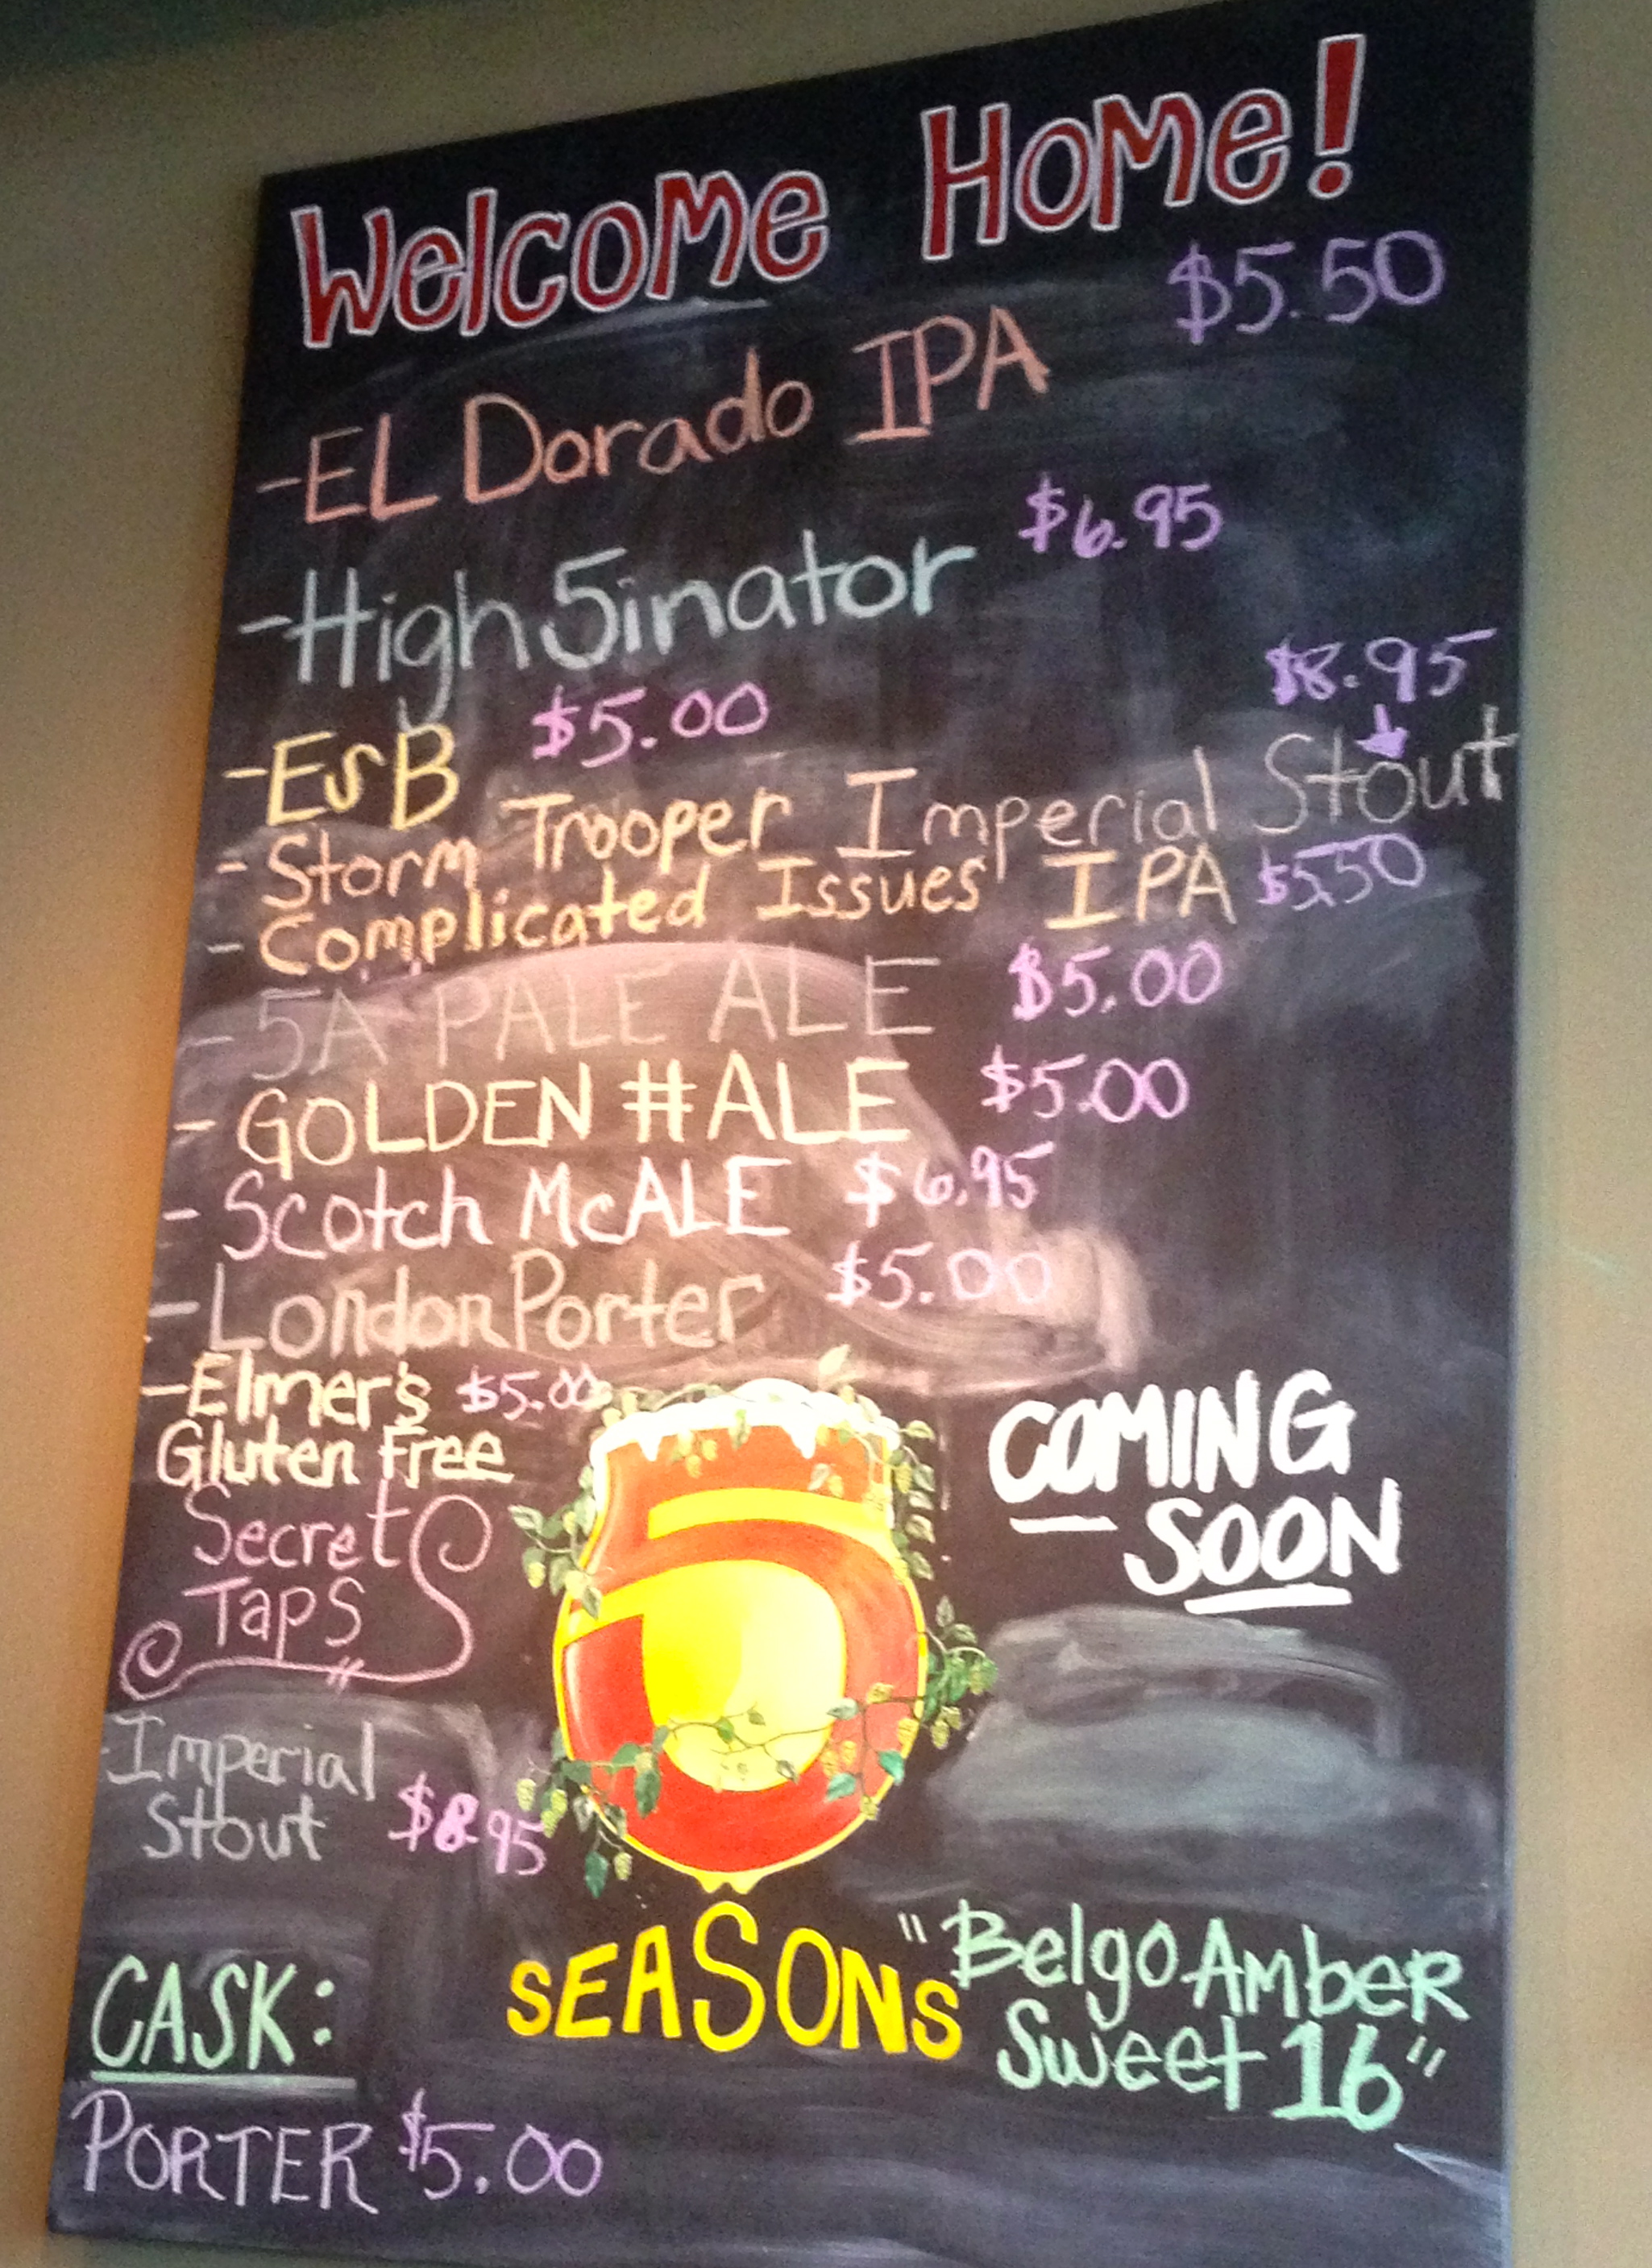 Welcome Home!
-EL Dorado IPA $5.50
-High5inator $6.95
-EsB $5.00
$8.95
-Storm Trooper Imperial Stout
-Complicated Issues IPA $5.50
-5A PALE ALE $5.00
-GOLDEN #ALE $5.00
-Scotch McALE $6.95
-London Porter $5.00
-Elmer's $5.00
Gluten Free
Secret
Taps
-Imperial
Stout $8.95
CASK:
PORTER $5.00
5
SEASONS
COMING
SOON
"Belgo AmbeR
Sweet 16"